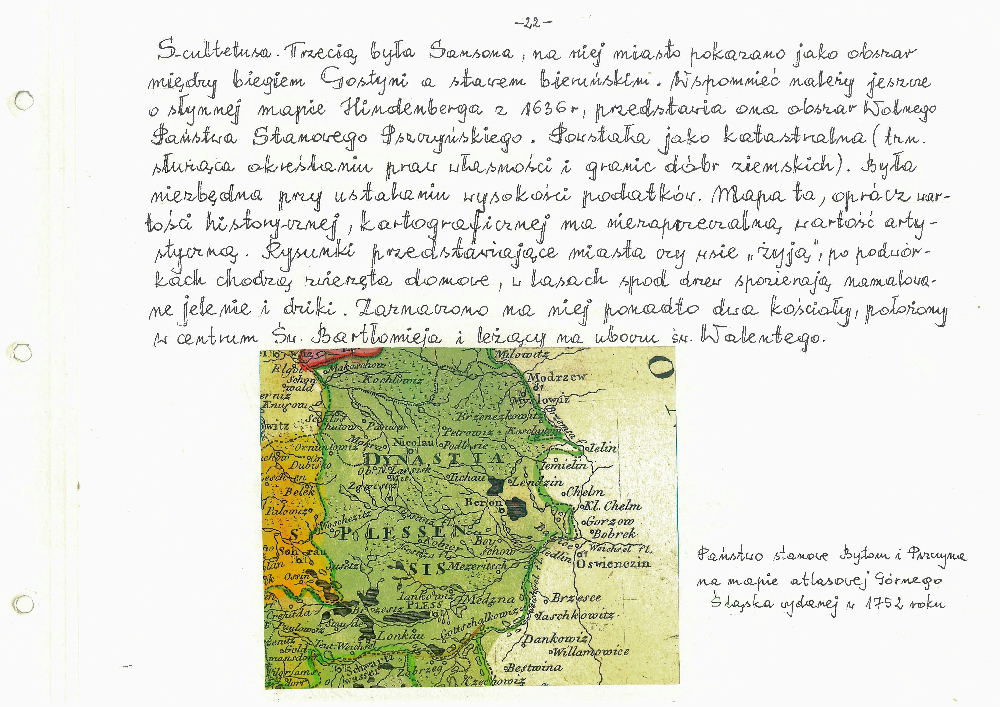 -22-
Scultetusa. Trzecią była Sansona, na niej miasto pokazano jako obszar
między biegiem Gostyni a stawem bieruńskim. Wspomnieć należy jeszcze
o słynnej mapie Hindenberga z 1636r, przedstawia ona obszar Wolnego
Państwa Stanowego Pszczyńskiego. Powstała jako katastralna (tzn.
służąca określaniu praw własności i granic dóbr ziemskich). Była
niezbędna przy ustalaniu wysokości podatków. Mapa ta, oprócz war-
tości historycznej, kartograficznej ma niezaprzeczalną wartość arty-
styczną. Rysunki przedstawiające miasta czy wsie "żyją", po podwór-
kach chodzą zwierzęta domowe, w lasach spod drzew spozierają namalowa-
ne jelenie i dziki. Zaznaczono na niej ponadto dwa kościoły, położony
w centrum Św. Bartłomieja i leżący na uboczu św. Walentego.
Milowitz
Makoschow
Kochlowiz
Modrzew
Myslowiz
Brzenczkowitz
Petrowiz
Nicolau
Podlesie
Jelin
DYNASTIA
Jemielin
Tichau
Lendzin
Chelm
Berun
Kl. Chelm
Gorzow
Bobrek
PLESSEN
Weichsel Fl.
Oswienczin
SIS
Mezeritsch
PLESS
Medzna
Brzesce
Jaschkowitz
Lonkau
Gottschalkowiz
Dankowiz
Willamowice
Bestwina
Zabrzeg
Czechowiz
Belek
Palowiz
Państwo stanowe Bytom i Pszczyna
na mapie atlasowej Górnego
Śląska wydanej w 1752 roku